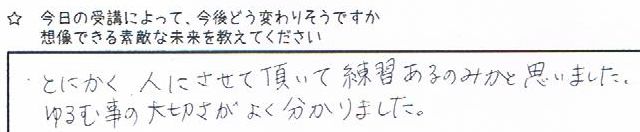 ☆ 今日の受講によって、今後どう変わりそうですか
想像できる素敵な未来を教えてください
・とにかく 人にさせて頂いて 練習あるのみかと思いました。
ゆるむ事の大切さがよく分かりました。